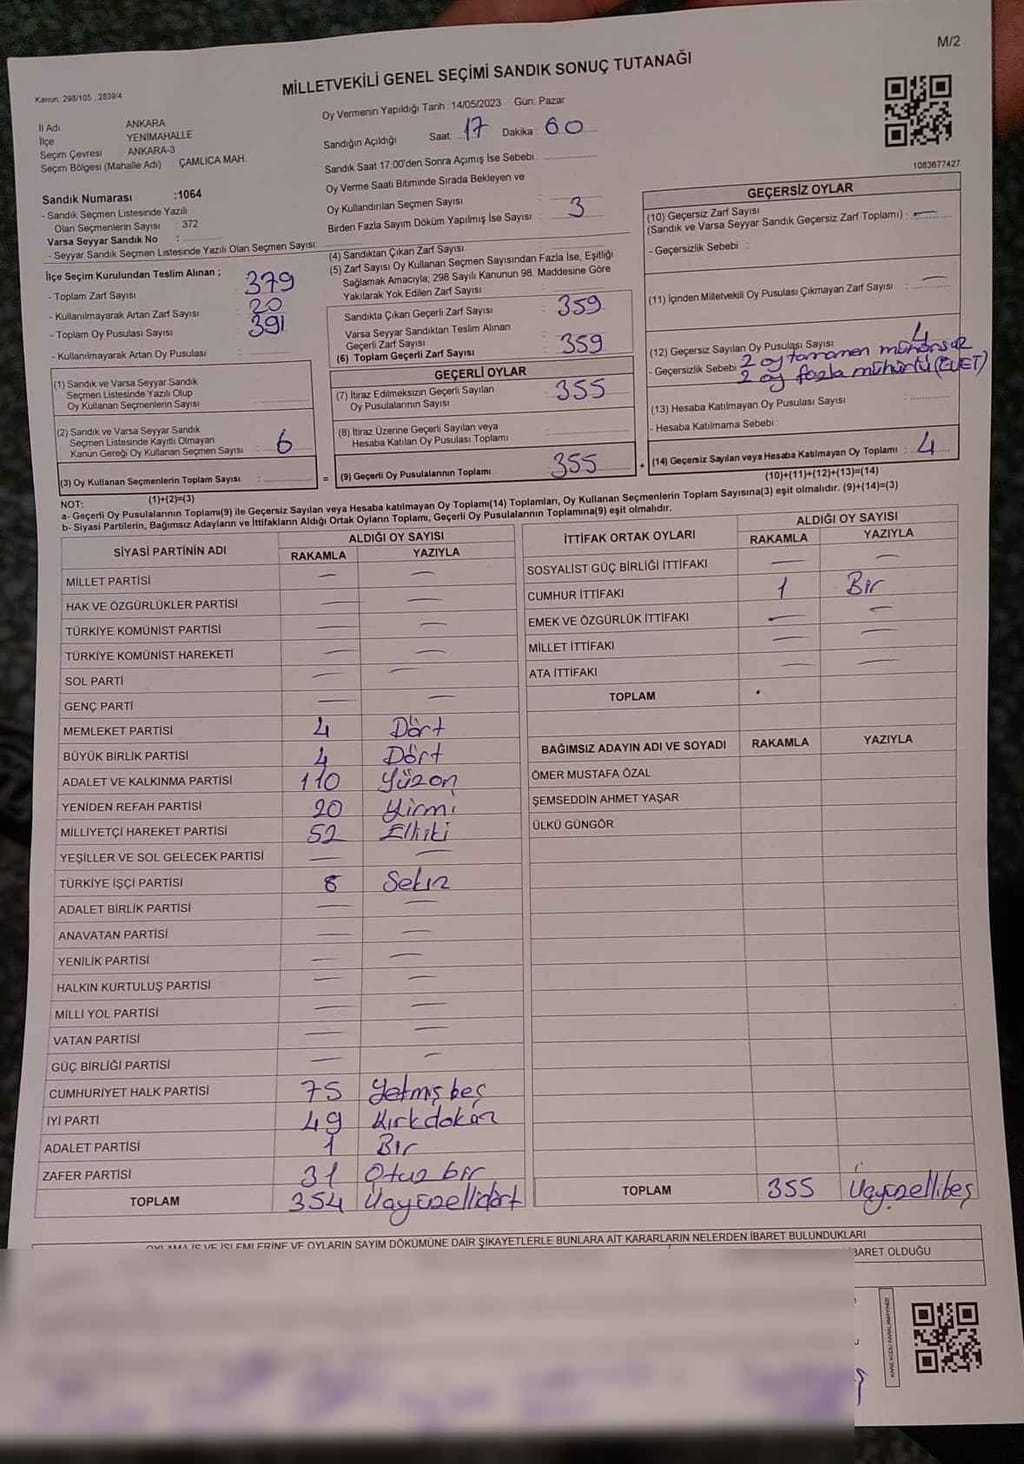 M/2
Kanun: 298/105 , 2839/4
MİLLETVEKİLİ GENEL SEÇİMİ SANDIK SONUÇ TUTANAĞI
İl Adı ANKARA
İlçe YENİMAHALLE
Seçim Çevresi ANKARA-3
Seçim Bölgesi (Mahalle Adı) ÇAMLICA MAH
Oy Vermenin Yapıldığı Tarih : 14/05/2023 Gün: Pazar
Sandığın Açıldığı Saat: 17 Dakika: 60
Sandık Saat 17.00'den Sonra Açımış İse Sebebi:
Oy Verme Saati Bitiminde Sırada Bekleyen ve
Oy Kullandırılan Seçmen Sayısı
Birden Fazla Sayım Döküm Yapılmış İse Sayısı : 3
1083677427
Sandık Numarası :1064
- Sandık Seçmen Listesinde Yazılı
Olan Seçmenlerin Sayısı : 372
Varsa Seyyar Sandık No :
- Seyyar Sandık Seçmen Listesinde Yazılı Olan Seçmen Sayısı:
İlçe Seçim Kurulundan Teslim Alınan ;
- Toplam Zarf Sayısı 379
- Kullanılmayarak Artan Zarf Sayısı : 20
- Toplam Oy Pusulası Sayısı 391
- Kullanılmayarak Artan Oy Pusulası
(1) Sandık ve Varsa Seyyar Sandık
Seçmen Listesinde Yazılı Olup
Oy Kullanan Seçmenlerin Sayısı
(2) Sandık ve Varsa Seyyar Sandık
Seçmen Listesinde Kayıtlı Olmayan
Kanun Gereği Oy Kullanan Seçmen Sayısı : 6
(3) Oy Kullanan Seçmenlerin Toplam Sayısı :
(1)+(2)=(3)
(4) Sandıktan Çıkan Zarf Sayısı
(5) Zarf Sayısı Oy Kullanan Seçmen Sayısından Fazla İse, Eşitliği
Sağlamak Amacıyla, 298 Sayılı Kanunun 98. Maddesine Göre
Yakılarak Yok Edilen Zarf Sayısı
Sandıkta Çıkan Geçerli Zarf Sayısı : 359
Varsa Seyyar Sandıktan Teslim Alınan
Geçerli Zarf Sayısı
(6) Toplam Geçerli Zarf Sayısı : 359
GEÇERLİ OYLAR
(7) İtiraz Edilmeksizin Geçerli Sayılan
Oy Pusulalarının Sayısı : 355
(8) İtiraz Üzerine Geçerli Sayılan veya
Hesaba Katılan Oy Pusulası Toplamı
= (9) Geçerli Oy Pusulalarının Toplamı : 355 +
GEÇERSİZ OYLAR
(10) Geçersiz Zarf Sayısı
(Sandık ve Varsa Seyyar Sandık Geçersiz Zarf Toplamı) : —
- Geçersizlik Sebebi :
(11) İçinden Milletvekili Oy Pusulası Çıkmayan Zarf Sayısı : —
(12) Geçersiz Sayılan Oy Pusulası Sayısı 4
- Geçersizlik Sebebi 2 oy tamamen mühürsüz
2 oy fazla mühürlü (EVET)
(13) Hesaba Katılmayan Oy Pusulası Sayısı :
- Hesaba Katılmama Sebebi
(14) Geçersiz Sayılan veya Hesaba Katılmayan Oy Toplamı : 4
(10)+(11)+(12)+(13)=(14)
NOT:
a- Geçerli Oy Pusulalarının Toplamı(9) ile Geçersiz Sayılan veya Hesaba katılmayan Oy Toplamı(14) Toplamları, Oy Kullanan Seçmenlerin Toplam Sayısına(3) eşit olmalıdır. (9)+(14)=(3)
b- Siyasi Partilerin, Bağımsız Adayların ve İttifakların Aldığı Ortak Oyların Toplamı, Geçerli Oy Pusulalarının Toplamına(9) eşit olmalıdır.
SİYASİ PARTİNİN ADI ALDIĞI OY SAYISI
RAKAMLA YAZIYLA
MİLLET PARTİSİ — —
HAK VE ÖZGÜRLÜKLER PARTİSİ — —
TÜRKİYE KOMÜNİST PARTİSİ — —
TÜRKİYE KOMÜNİST HAREKETİ — —
SOL PARTİ — —
GENÇ PARTİ — —
MEMLEKET PARTİSİ 4 Dört
BÜYÜK BİRLİK PARTİSİ 4 Dört
ADALET VE KALKINMA PARTİSİ 110 Yüzon
YENİDEN REFAH PARTİSİ 20 Yirmi
MİLLİYETÇİ HAREKET PARTİSİ 52 Elliiki
YEŞİLLER VE SOL GELECEK PARTİSİ — —
TÜRKİYE İŞÇİ PARTİSİ 8 Sekiz
ADALET BİRLİK PARTİSİ — —
ANAVATAN PARTİSİ — —
YENİLİK PARTİSİ — —
HALKIN KURTULUŞ PARTİSİ — —
MİLLİ YOL PARTİSİ — —
VATAN PARTİSİ — —
GÜÇ BİRLİĞİ PARTİSİ — —
CUMHURİYET HALK PARTİSİ 75 Yetmiş beş
İYİ PARTİ 49 Kırkdokuz
ADALET PARTİSİ 1 Bir
ZAFER PARTİSİ 31 Otuz bir
TOPLAM 354 Üçyüzellidört
İTTİFAK ORTAK OYLARI ALDIĞI OY SAYISI
RAKAMLA YAZIYLA
SOSYALİST GÜÇ BİRLİĞİ İTTİFAKI — —
CUMHUR İTTİFAKI 1 Bir
EMEK VE ÖZGÜRLÜK İTTİFAKI — —
MİLLET İTTİFAKI — —
ATA İTTİFAKI — —
TOPLAM
BAĞIMSIZ ADAYIN ADI VE SOYADI RAKAMLA YAZIYLA
ÖMER MUSTAFA ÖZAL
ŞEMSEDDİN AHMET YAŞAR
ÜLKÜ GÜNGÖR
TOPLAM 355 Üçyüzellibeş
OYLAMA İŞ VE İŞLEMLERİNE VE OYLARIN SAYIM DÖKÜMÜNE DAİR ŞİKAYETLERLE BUNLARA AİT KARARLARIN NELERDEN İBARET BULUNDUKLARI
İBARET OLDUĞU
KARE KODU KARALAMAYINIZ!